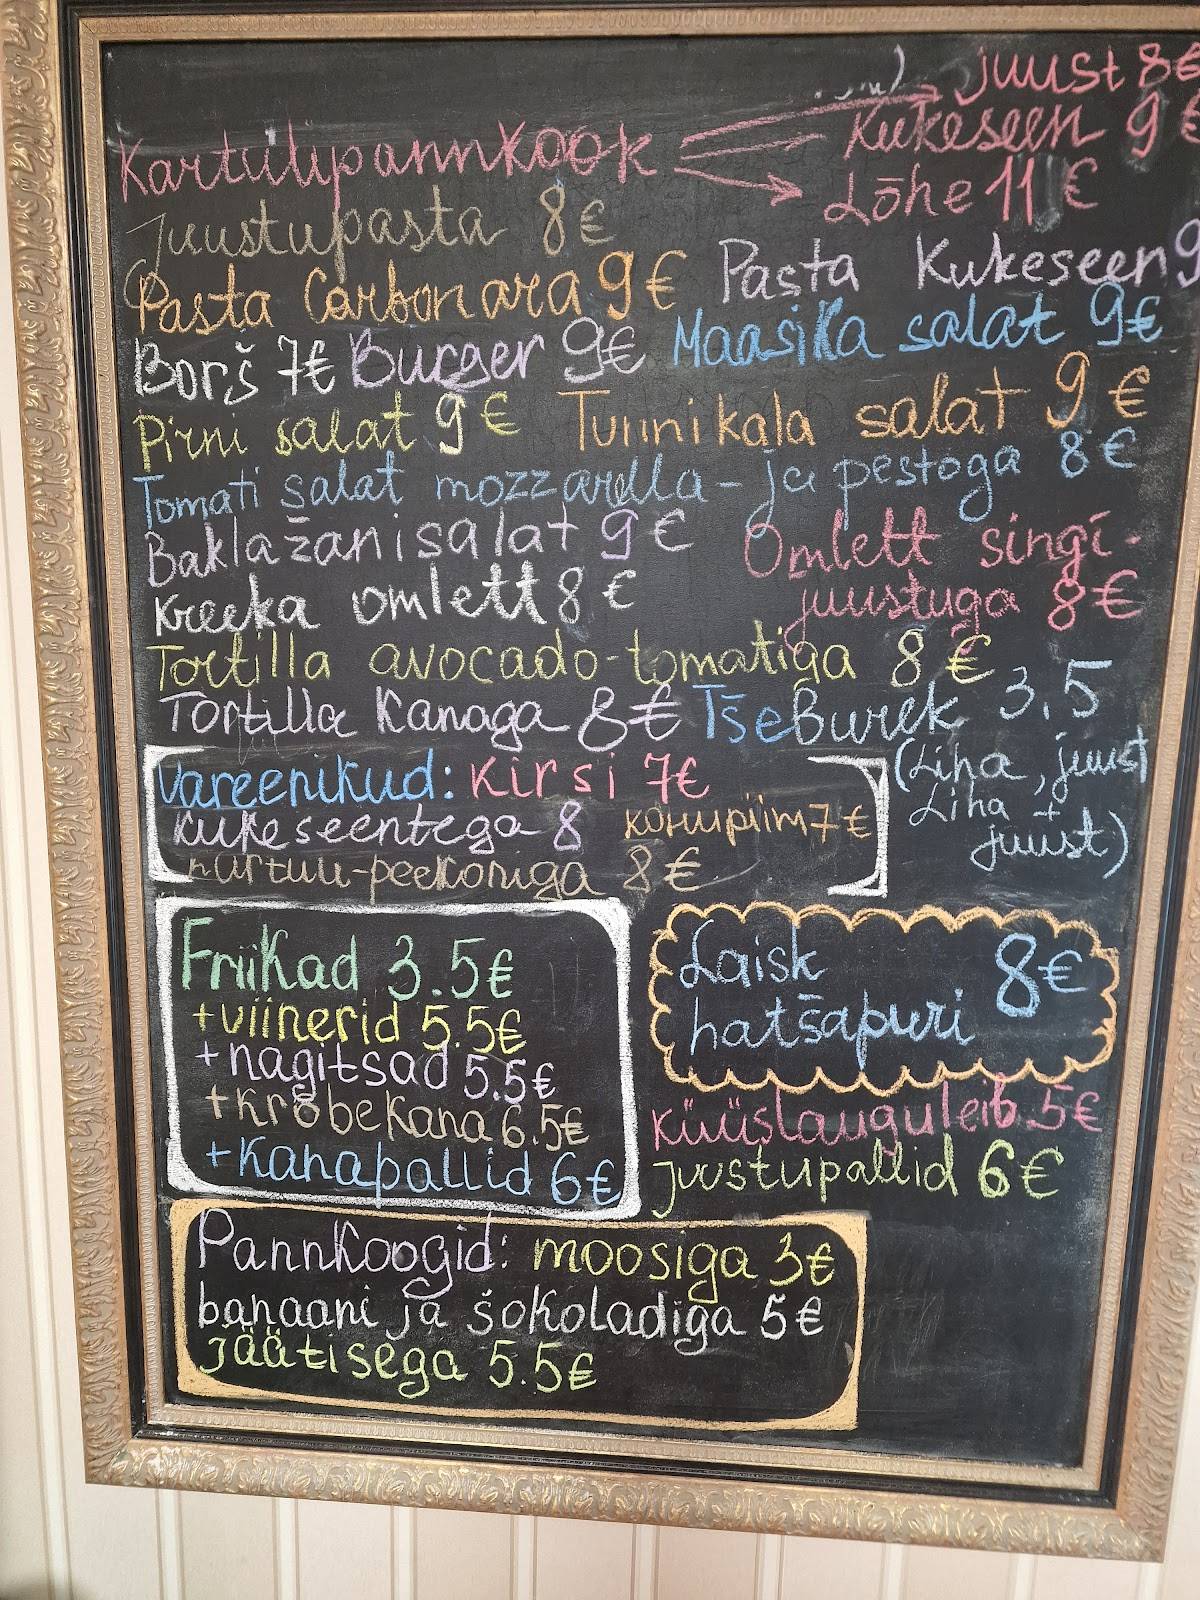 juust 8€
Kartulipannkook Kukeseen 9 €
Lõhe 11 €
Juustupasta 8€
Pasta Carbonara 9€ Pasta Kukeseen 9
Borš 7€ Burger 9€ Maasika salat 9€
Pirni salat 9€ Tuunikala salat 9€
Tomati salat mozzarella- ja pestoga 8€
Baklažani salat 9€ Omlett singi-
juustuga 8€
Kreeka omlett 8€
Tortilla avocado-tomatiga 8€
Tortilla Kanaga 8€ Tšeburek 3,5
(Liha, juust
Liha +
juust)
Vareenikud: Kirsi 7€
Kukeseentega 8 kohupiim 7€
kartuli-peekoniga 8€
Friikad 3.5€
+viinerid 5.5€
+nagitsad 5.5€
+Krõbekana 6.5€
+Kanapallid 6€
Laisk 8€
hatšapuri
Küüslauguleib 5€
Juustupallid 6€
Pannkoogid: moosiga 3€
banaani ja šokoladiga 5€
Jäätisega 5.5€